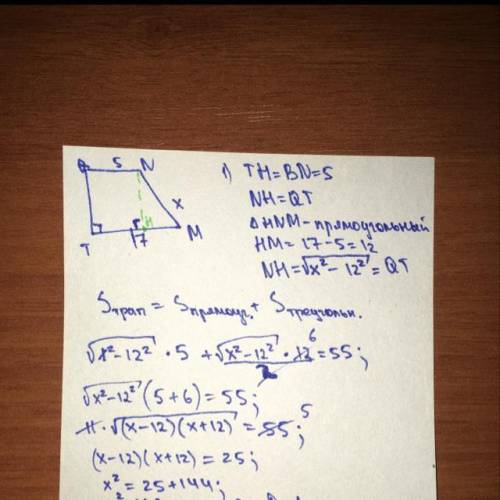 5 N
Q
x
H
T 17 M
1) TH=BN=5
NH=QT
ΔHNM-прямоугольный
HM=17-5=12
NH=√(x²-12²)=QT
Sтрап = Sпрямоуг. + Sтреугольн.
√(x²-12²) · 5 + √(x²-12²) · 12 6 / 2 = 55;
√(x²-12²) (5+6)=55;
11 · √((x-12)(x+12)) = 55; 5
(x-12)(x+12)=25;
x²=25+144;